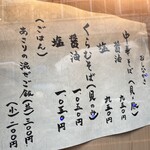 おしながき
中華そば(貝・豚)
醤油 九五〇円
塩 九五〇円
くらむそば(貝の)
醤油 一〇五〇円
塩 一〇五〇円
(ごはん)
あさりの混ぜご飯(並)三〇〇円
(小)二〇〇円